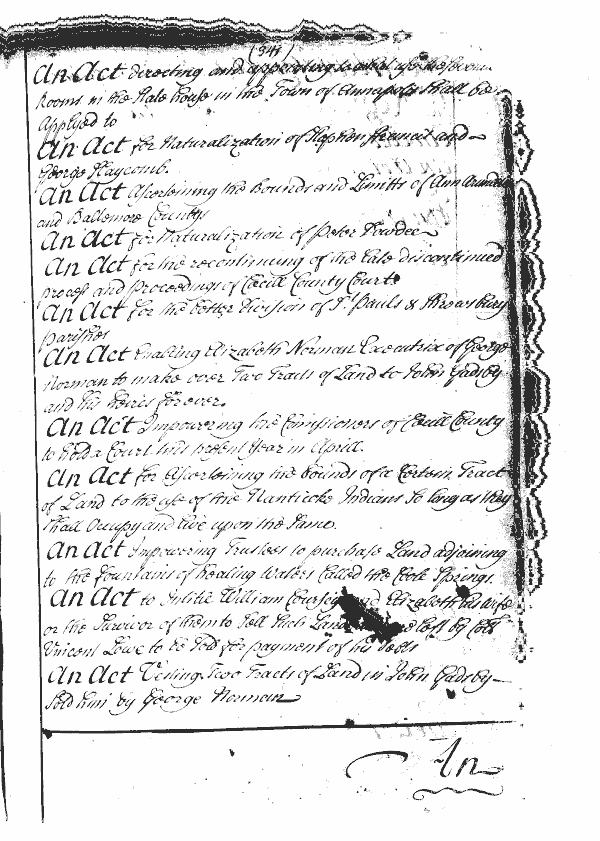 (341)
An Act directing and appointing to what use the severall
Rooms in the State house in the Town of Annapolis shall be
Applyed to
An Act for Naturalization of Stephen Francis and
George Slaycomb.
An Act Ascertaining the Bounds and Limitts of Ann Arundel
and Baltemore Countys
An Act for Naturalization of Peter
An Act for the recontinuing of the Late discontinued
process and Proceedings of Cecill County Courte
An Act for the better Division of St. Pauls & Shrewsbury
parishes
An Act Enabling Elizabeth Norman Executrix of George
Norman to make over Two Tracts of Land to John Gadsby
and his heires for ever.
An Act Impowering the Comissioners of Cecill County
to hold a Court this present Year in Aprill.
An Act for Ascertaining the bounds of a Certain Tract
of Land to the use of the Nanticoke Indians So long as they
shall Occupy and live upon the same.
An Act Impowering Trustees to purchase Land adjoining
to the Fountains of healing Waters Called the Coole Springs.
An Act to Intitle William Coursey and Elizabeth his wife
or the Survivor of them to Sell such Land left by Coll
Vincent Lowe to be Sold for payment of his debts
An Act Vesting Two Tracts of Land in John Gadsby
Sold him by George Norman
An